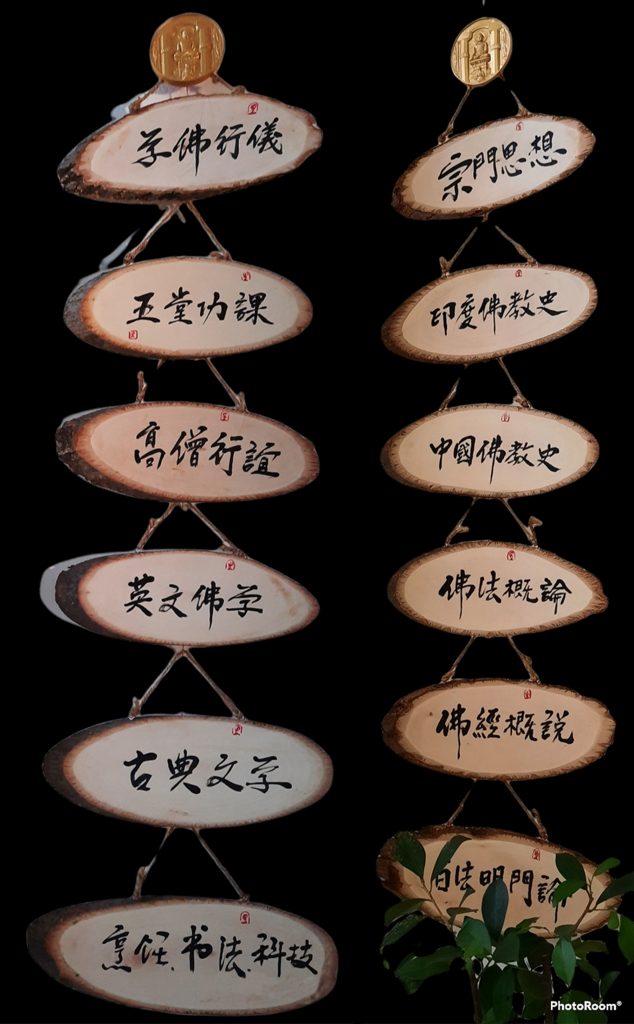 学佛行儀
五堂功課
高僧行誼
英文佛学
古典文学
烹饪、书法、科技
宗門思想
印度佛教史
中國佛教史
佛法概論
佛經概説
百法明門論
PhotoRoom®